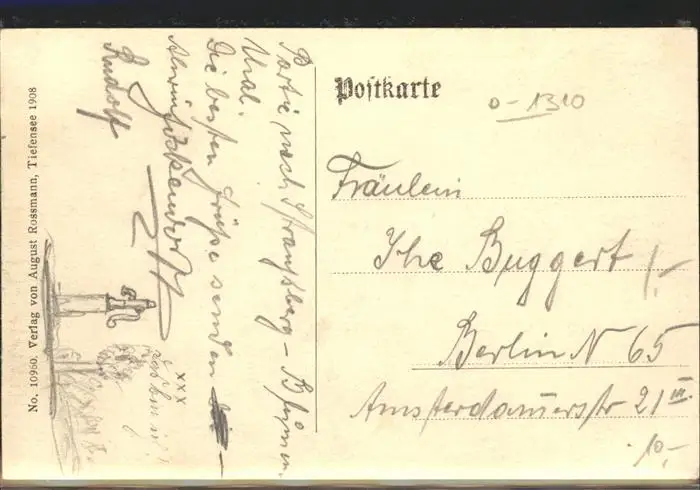 Postkarte
0-1310
Fräulein
Ilse Buggert
1,-
Berlin N 65
Amsterdamerstr 21 III.
10,-
Partie nach Strausberg - Blumen-
thal.
Die besten Grüße senden
Rudolf
xxx
No. 10960. Verlag von August Rossmann, Tiefensee 1908